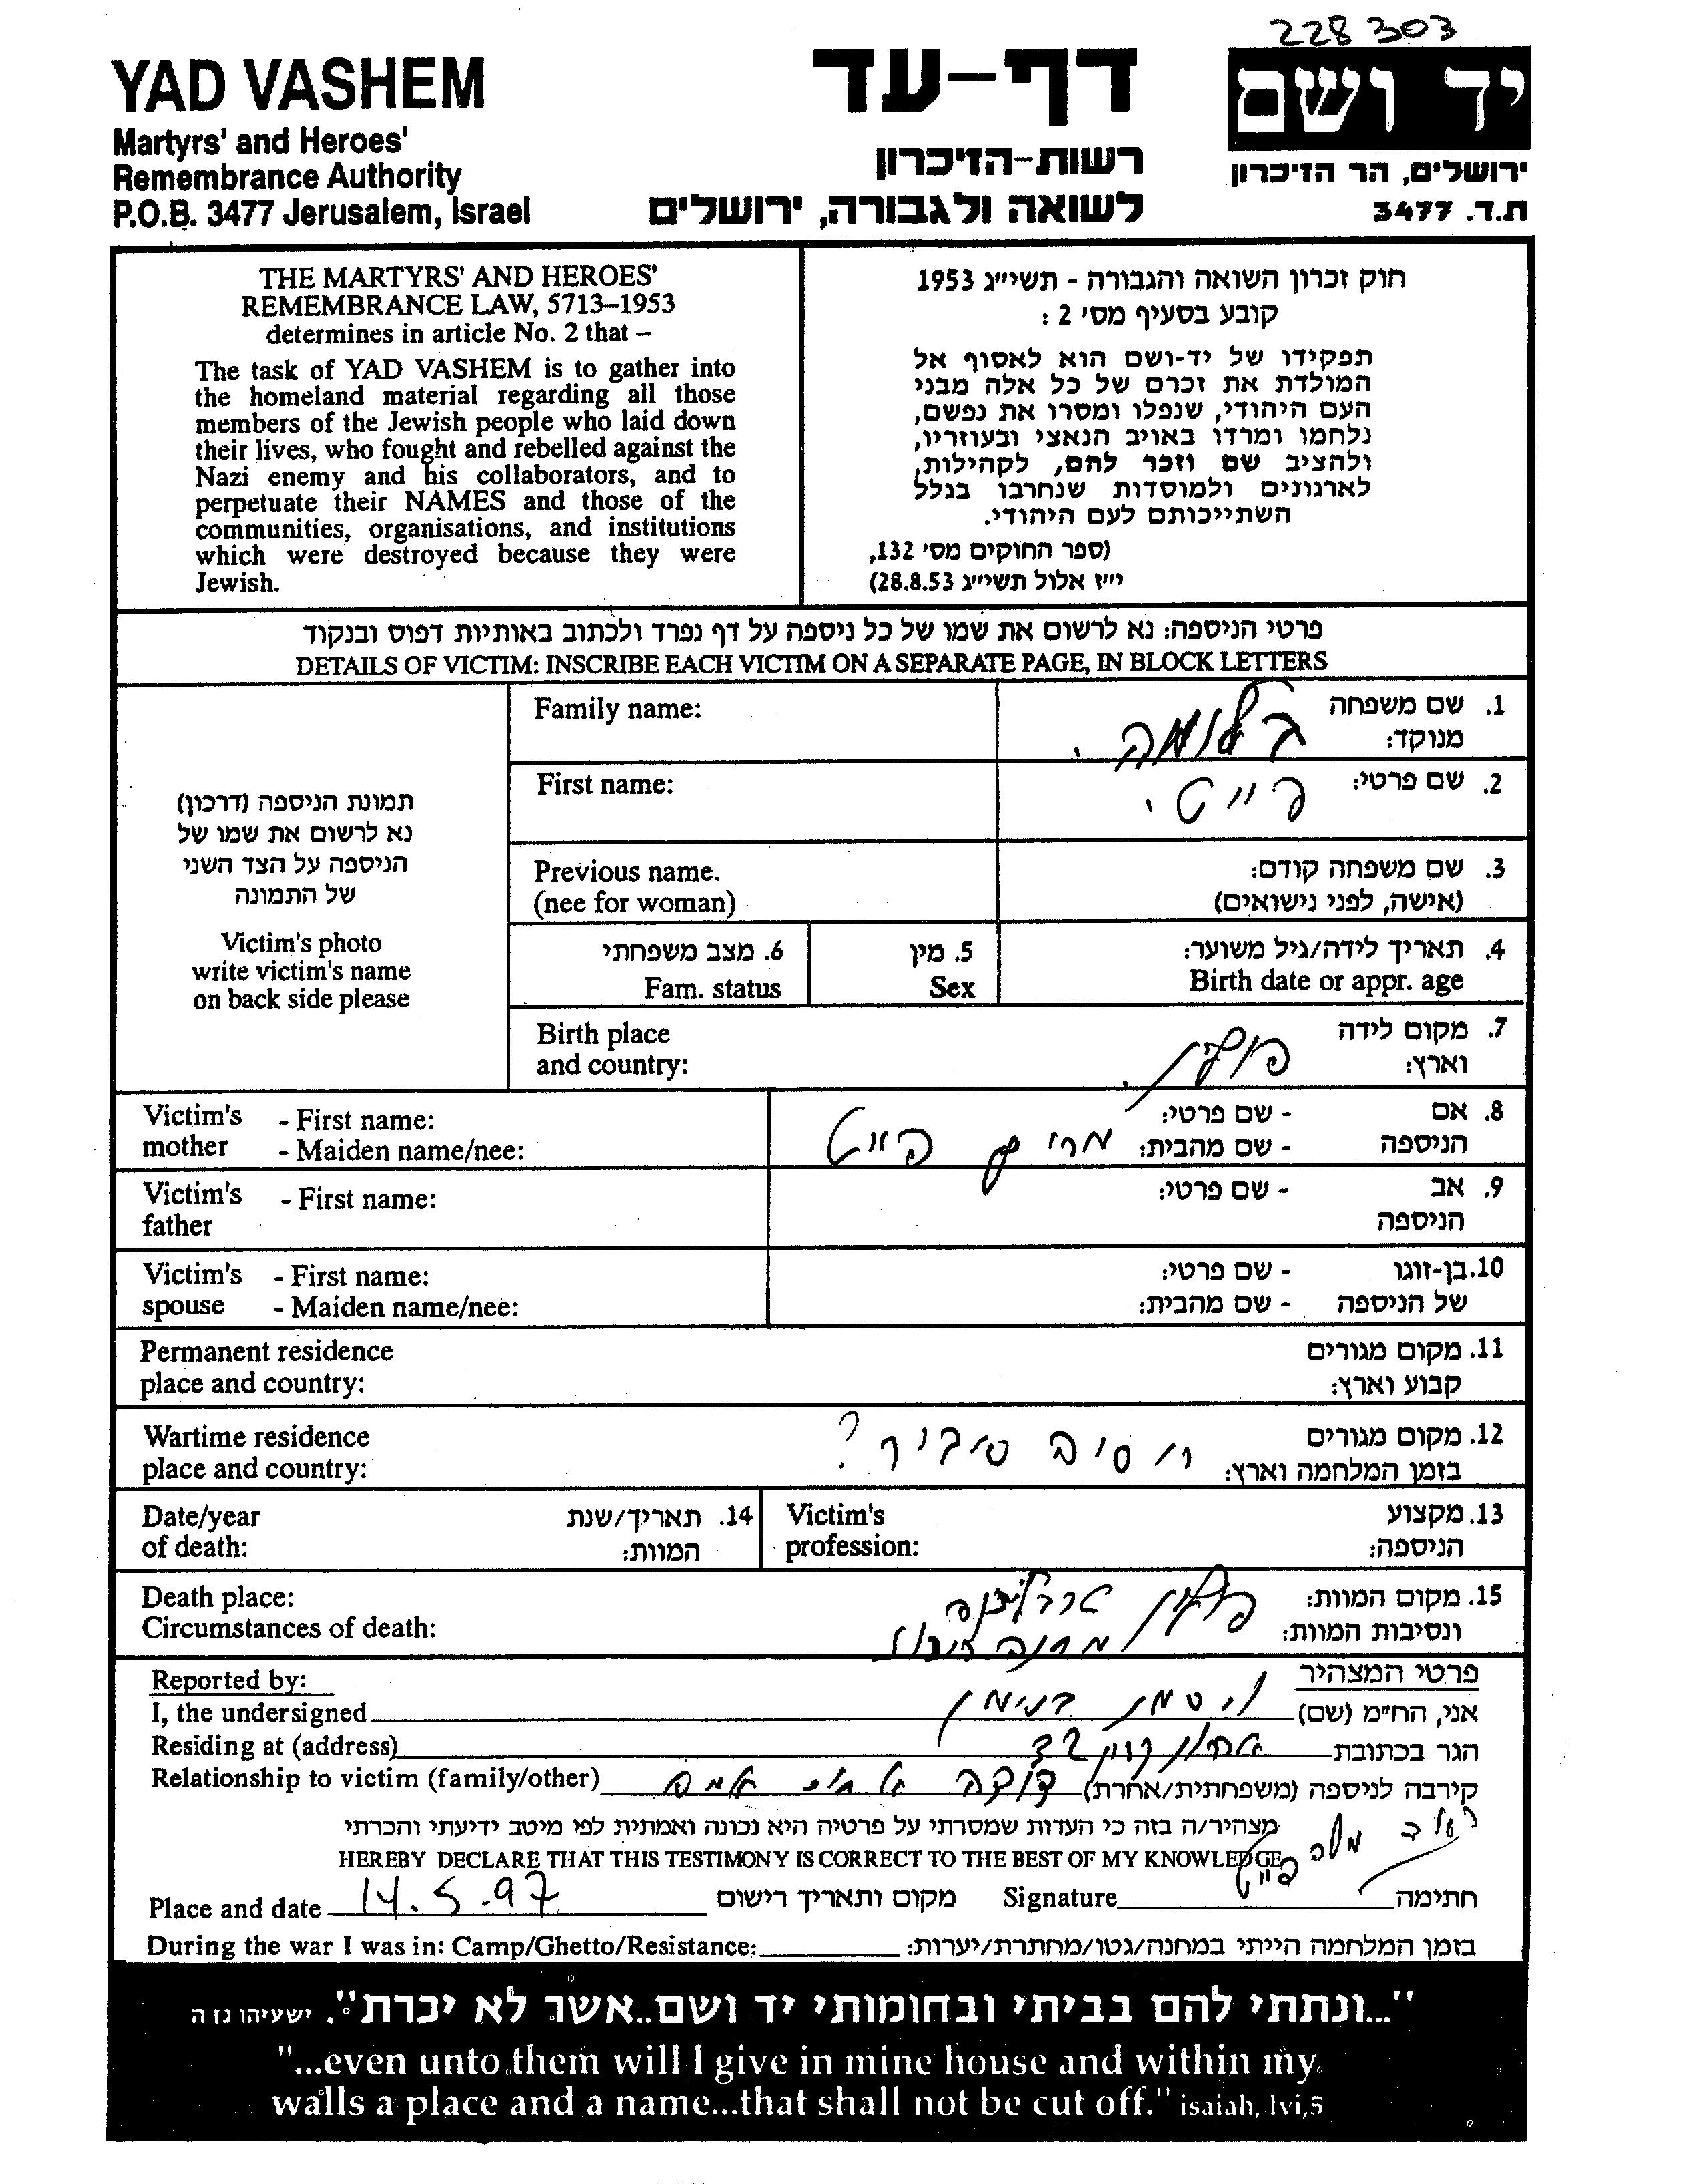 228 303
YAD VASHEM
Martyrs' and Heroes'
Remembrance Authority
P.O.B. 3477 Jerusalem, Israel
דף-עד
רשות-הזיכרון
לשואה ולגבורה, ירושלים
יד ושם
ירושלים, הר הזיכרון
ת.ד. 3477
THE MARTYRS' AND HEROES'
REMEMBRANCE LAW, 5713–1953
determines in article No. 2 that –
The task of YAD VASHEM is to gather into
the homeland material regarding all those
members of the Jewish people who laid down
their lives, who fought and rebelled against the
Nazi enemy and his collaborators, and to
perpetuate their NAMES and those of the
communities, organisations, and institutions
which were destroyed because they were
Jewish.
חוק זכרון השואה והגבורה - תשי״ג 1953
קובע בסעיף מס׳ 2 :
תפקידו של יד-ושם הוא לאסוף אל
המולדת את זכרם של כל אלה מבני
העם היהודי, שנפלו ומסרו את נפשם,
נלחמו ומרדו באויב הנאצי ובעוזריו,
ולהציב שם וזכר להם, לקהילות,
לארגונים ולמוסדות שנחרבו בגלל
השתייכותם לעם היהודי.
(ספר החוקים מס׳ 132,
י״ז אלול תשי״ג 28.8.53)
פרטי הניספה: נא לרשום את שמו של כל ניספה על דף נפרד ולכתוב באותיות דפוס ובנקוד
DETAILS OF VICTIM: INSCRIBE EACH VICTIM ON A SEPARATE PAGE, IN BLOCK LETTERS
תמונת הניספה (דרכון)
נא לרשום את שמו של
הניספה על הצד השני
של התמונה
Victim's photo
write victim's name
on back side please
Family name:
1. שם משפחה
מנוקד:
First name:
2. שם פרטי:
פייט.
Previous name.
(nee for woman)
3. שם משפחה קודם:
(אישה, לפני נישואים)
6. מצב משפחתי
Fam. status
5. מין
Sex
4. תאריך לידה/גיל משוער:
Birth date or appr. age
Birth place
and country:
7. מקום לידה
וארץ:
פולין.
Victim's - First name:
mother - Maiden name/nee:
8. אם - שם פרטי:
הניספה - שם מהבית: פייט
Victim's - First name:
father
9. אב - שם פרטי:
הניספה
Victim's - First name:
spouse - Maiden name/nee:
10. בן-זוגו - שם פרטי:
של הניספה - שם מהבית:
Permanent residence
place and country:
11. מקום מגורים
קבוע וארץ:
Wartime residence
place and country:
12. מקום מגורים
בזמן המלחמה וארץ: סיביר ?
Date/year
of death:
14. תאריך/שנת
המוות:
Victim's
profession:
13. מקצוע
הניספה:
Death place:
Circumstances of death:
15. מקום המוות: פולין טרבלינקה
ונסיבות המוות: מחנה ריכוז
Reported by:
פרטי המצהיר
I, the undersigned
אני, הח״מ (שם) בנימין
Residing at (address)
הגר בכתובת
Relationship to victim (family/other)
קירבה לניספה (משפחתית/אחרת) דודה
מצהיר/ה בזה כי העדות שמסרתי על פרטיה היא נכונה ואמתית לפי מיטב ידיעתי והכרתי
HEREBY DECLARE THAT THIS TESTIMONY IS CORRECT TO THE BEST OF MY KNOWLEDGE.
Place and date 14.5.97 מקום ותאריך רישום
Signature חתימה
During the war I was in: Camp/Ghetto/Resistance: בזמן המלחמה הייתי במחנה/גטו/מחתרת/יערות:
"...ונתתי להם בביתי ובחומותי יד ושם..אשר לא יכרת". ישעיהו נז ה
"...even unto them will I give in mine house and within my
walls a place and a name...that shall not be cut off." isaiah, lvi,5